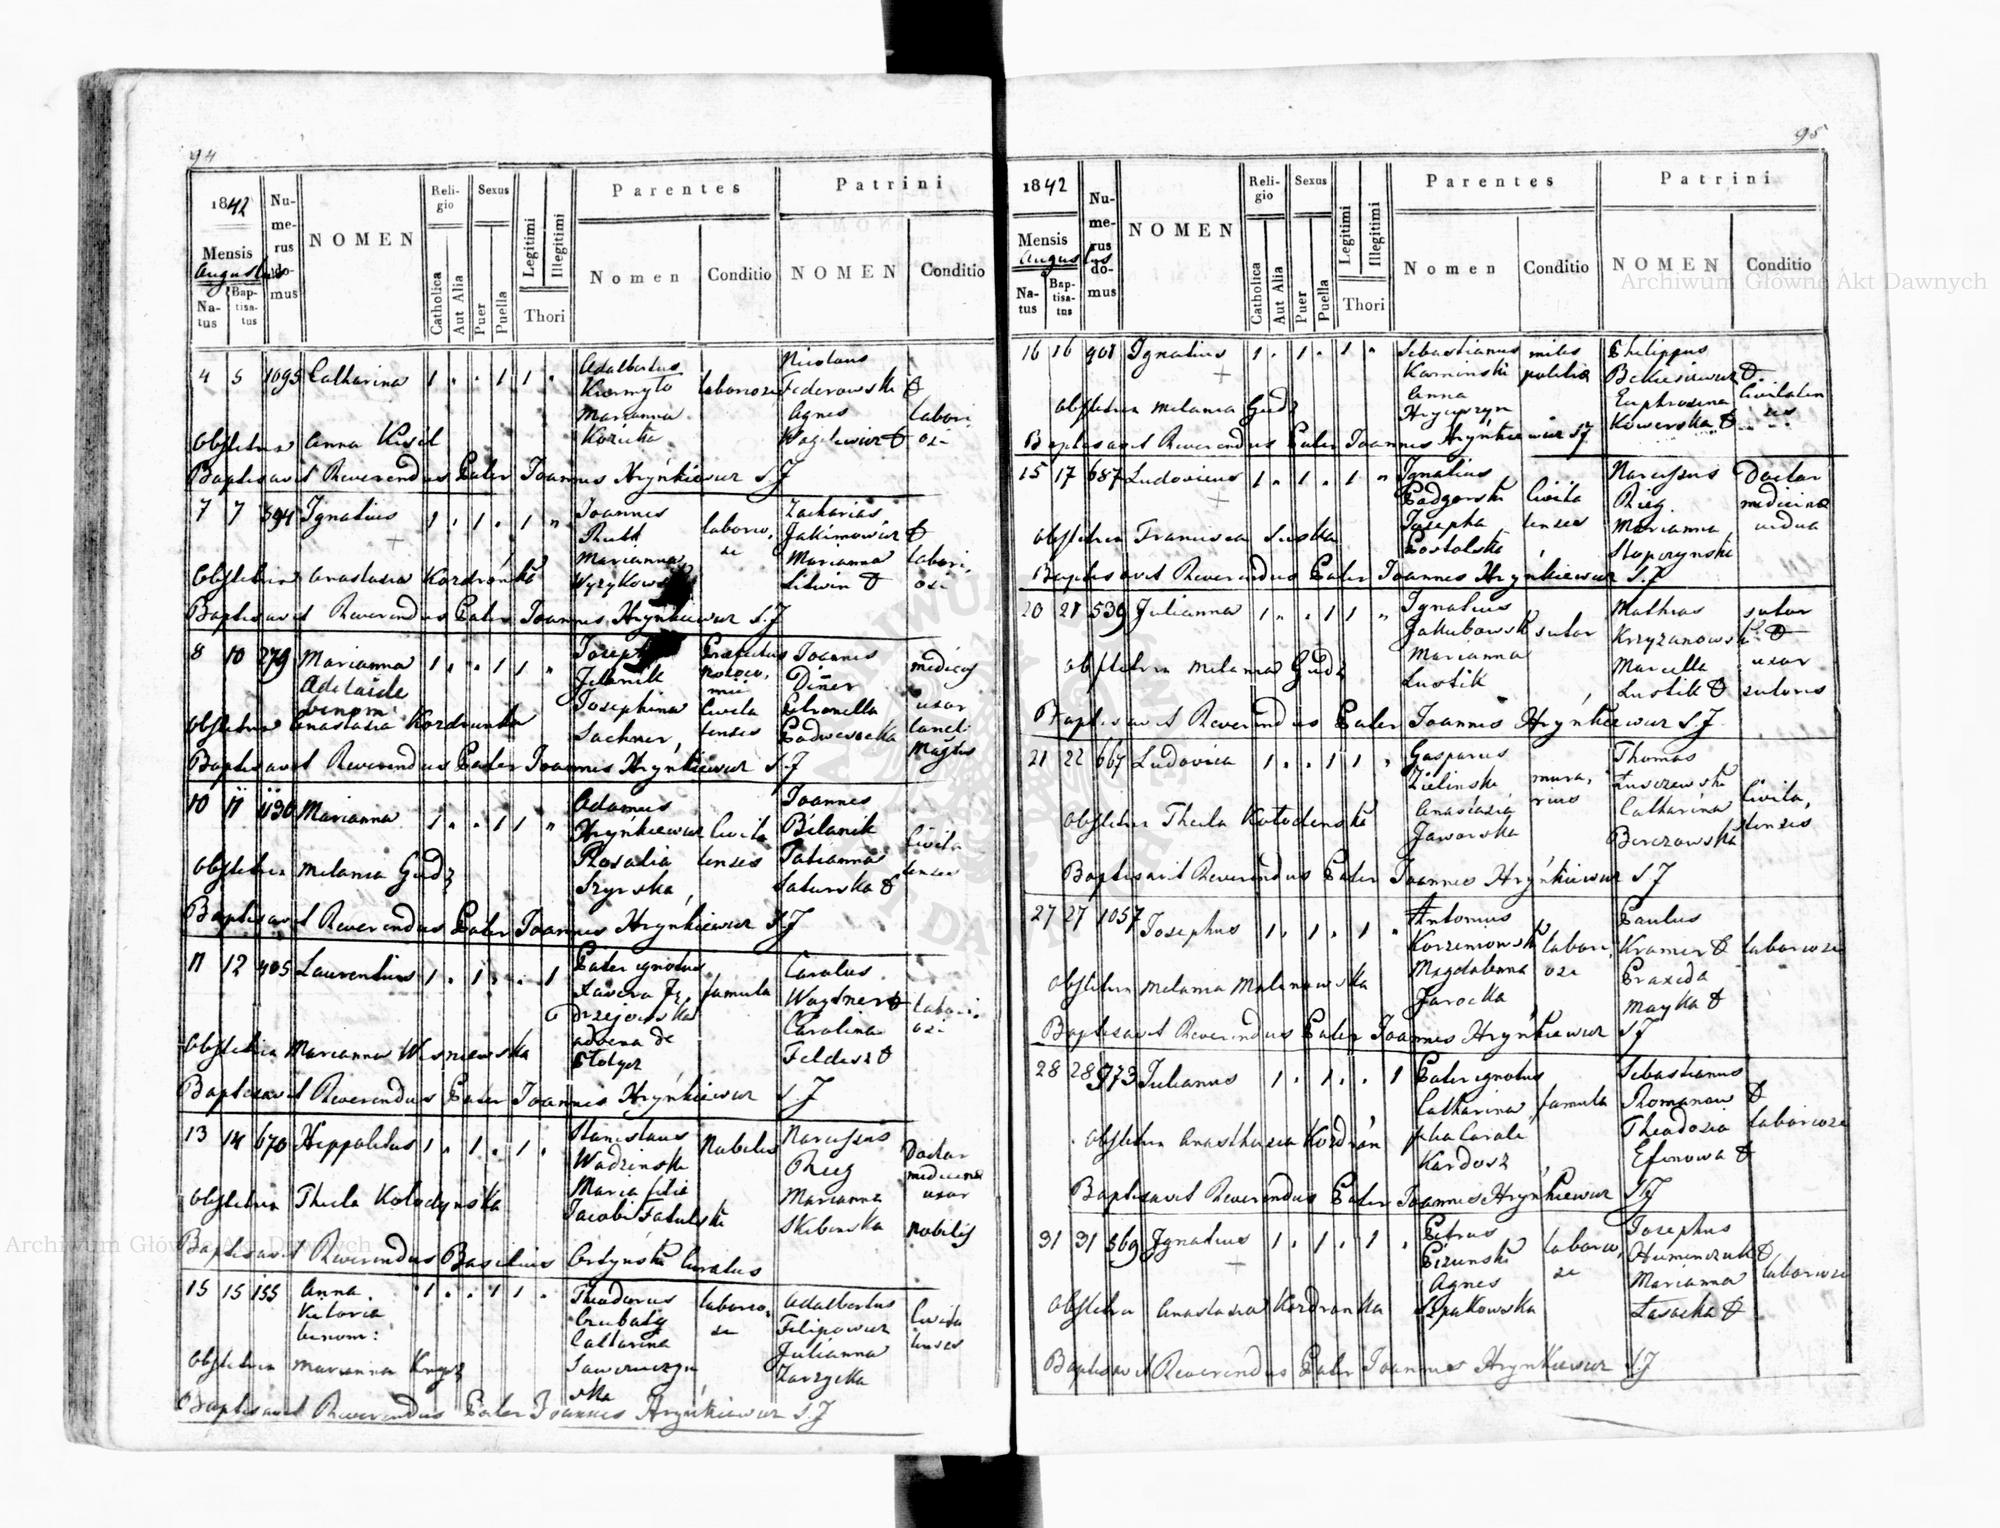 94
1842
Mensis
Augustus
Natus
Baptisatus
Numerus domus
NOMEN
Religio
Catholica
Aut Alia
Sexus
Puer
Puella
Legitimi
Illegitimi
Thori
Parentes
Nomen
Conditio
Patrini
NOMEN
Conditio
4 5 1095 Catharina 1 . . 1 1 .
Adalbertus
Marianna
Nicolaus
Federowski
Agnes
Obstetrix Anna Kisil
Baptisavit Reverendus Pater Joannes Hryńkiewicz S.J
7 7 394 Ignatius 1 . 1 . 1 "
Joannes
Marianna
Zacharias
Jakimowicz
Marianna
Litwin
Obstetrix Anastasia Kordrońka
Baptisavit Reverendus Pater Joannes Hryńkiewicz S.J
8 10 279 Marianna 1 . . 1 1 "
Adelaide
binom:
Joseph
Josephina
Sachner
civita
tensis
Joannes
Diner
Petronella
medicus
uxor
Obstetrix Anastasia Kordronka
Baptisavit Reverendus Pater Joannes Hryńkiewicz S.J
10 11 1130 Marianna 1 . . 1 1 "
Adamus
Hryńkiewicz
Rosalia
Szyrska
civita
tenses
Joannes
Bilanik
Tatianna
Saturska
civita
tenses
Obstetrix Melania Gudz
Baptisavit Reverendus Pater Joannes Hryńkiewicz S.J
11 12 405 Laurentius 1 . 1 . . 1
Pater ignotus
famula
advena de
Carolus
Wagdner
Carolina
labori
osi
Obstetrix Marianna Wisniewska
Baptisavit Reverendus Pater Joannes Hryńkiewicz S.J
13 14 670 Hippolitus 1 . 1 . 1 .
Stanislaus
Wodzinski
Maria filia
Jacobi
Nobiles
Narcissus
Rieg
Marianna
Skibinska
Doctor
medicinae
uxor
nobilis
Obstetrix Thecla Kołodyńska
Baptisavit Reverendus Basilius Ordyński Curatus
15 15 155 Anna 1 . . 1 1 .
Victoria
binom:
Theodorus
Catharina
laborio
si
Adalbertus
Filipowicz
Julianna
Zarzycka
civita
tenses
Obstetrix Marianna
Baptisavit Reverendus Pater Joannes Hryńkiewicz S.J
95
1842
Mensis
Augustus
Natus
Baptisatus
Numerus domus
NOMEN
Religio
Catholica
Aut Alia
Sexus
Puer
Puella
Legitimi
Illegitimi
Thori
Parentes
Nomen
Conditio
Patrini
NOMEN
Conditio
16 16 908 Ignatius 1 . 1 . 1 "
Sebastianus
Kaminski
Anna
Hrycyszyn
miles
politiae
Philippus
Euphrosina
Kowerska
civitaten
ses
Obstetrix Melania Gudz
Baptisavit Reverendus Pater Joannes Hryńkiewicz S.J
15 17 687 Ludovicus 1 . 1 . 1 "
Ignatius
Padgorski
Josepha
Postolska
civita
tenses
Narcissus
Rieg
Marianna
Stopczynska
Doctor
medicinae
vidua
Obstetrix Francisca Suska
Baptisavit Reverendus Pater Joannes Hryńkiewicz S.J
20 21 539 Julianna 1 . . 1 1 "
Ignatius
Jakubowski
Marianna
Lustik
sutor
Mathias
Krzyzanowski
Marcella
Lustik
sutor
uxor
sutoris
Obstetrix Melania Gudz
Baptisavit Reverendus Pater Joannes Hryńkiewicz S.J.
21 22 667 Ludovica 1 . . 1 1 .
Gasparus
Zielinski
Anastasia
Jaworska
mura
rius
Thomas
Catharina
Berezowska
civita
tenses
Obstetrix Thecla Kołodenska
Baptisavit Reverendus Pater Joannes Hryńkiewicz S.J
27 27 1057 Josephus 1 . 1 . 1 .
Antonius
Korzeniowski
Magdalenna
Jarocka
labori
osi
Paulus
Kramer
Praxeda
Mayka
laboriosi
Obstetrix Melania Malinowska
Baptisavit Reverendus Pater Joannes Hryńkiewicz S.J
28 28 973 Julianus 1 . 1 . . 1
Pater ignotus
Catharina
filia Caroli
Kardosz
famula
Sebastianus
Romanow
Theodosia
Efimowa
laboriosi
Obstetrix Anasthasia Kordrón
Baptisavit Reverendus Pater Joannes Hryńkiewicz S.J
31 31 569 Ignatius 1 . 1 . 1 .
Petrus
Agnes
Szpakowska
laborio
si
Josephus
Humenczuk
Marianna
Lasocka
laboriosi
Obstetrix Anastasia Kordronka
Baptisavit Reverendus Pater Joannes Hrynkiewicz S.J
Archiwum Główne Akt Dawnych
Archiwum Główne Akt Dawnych